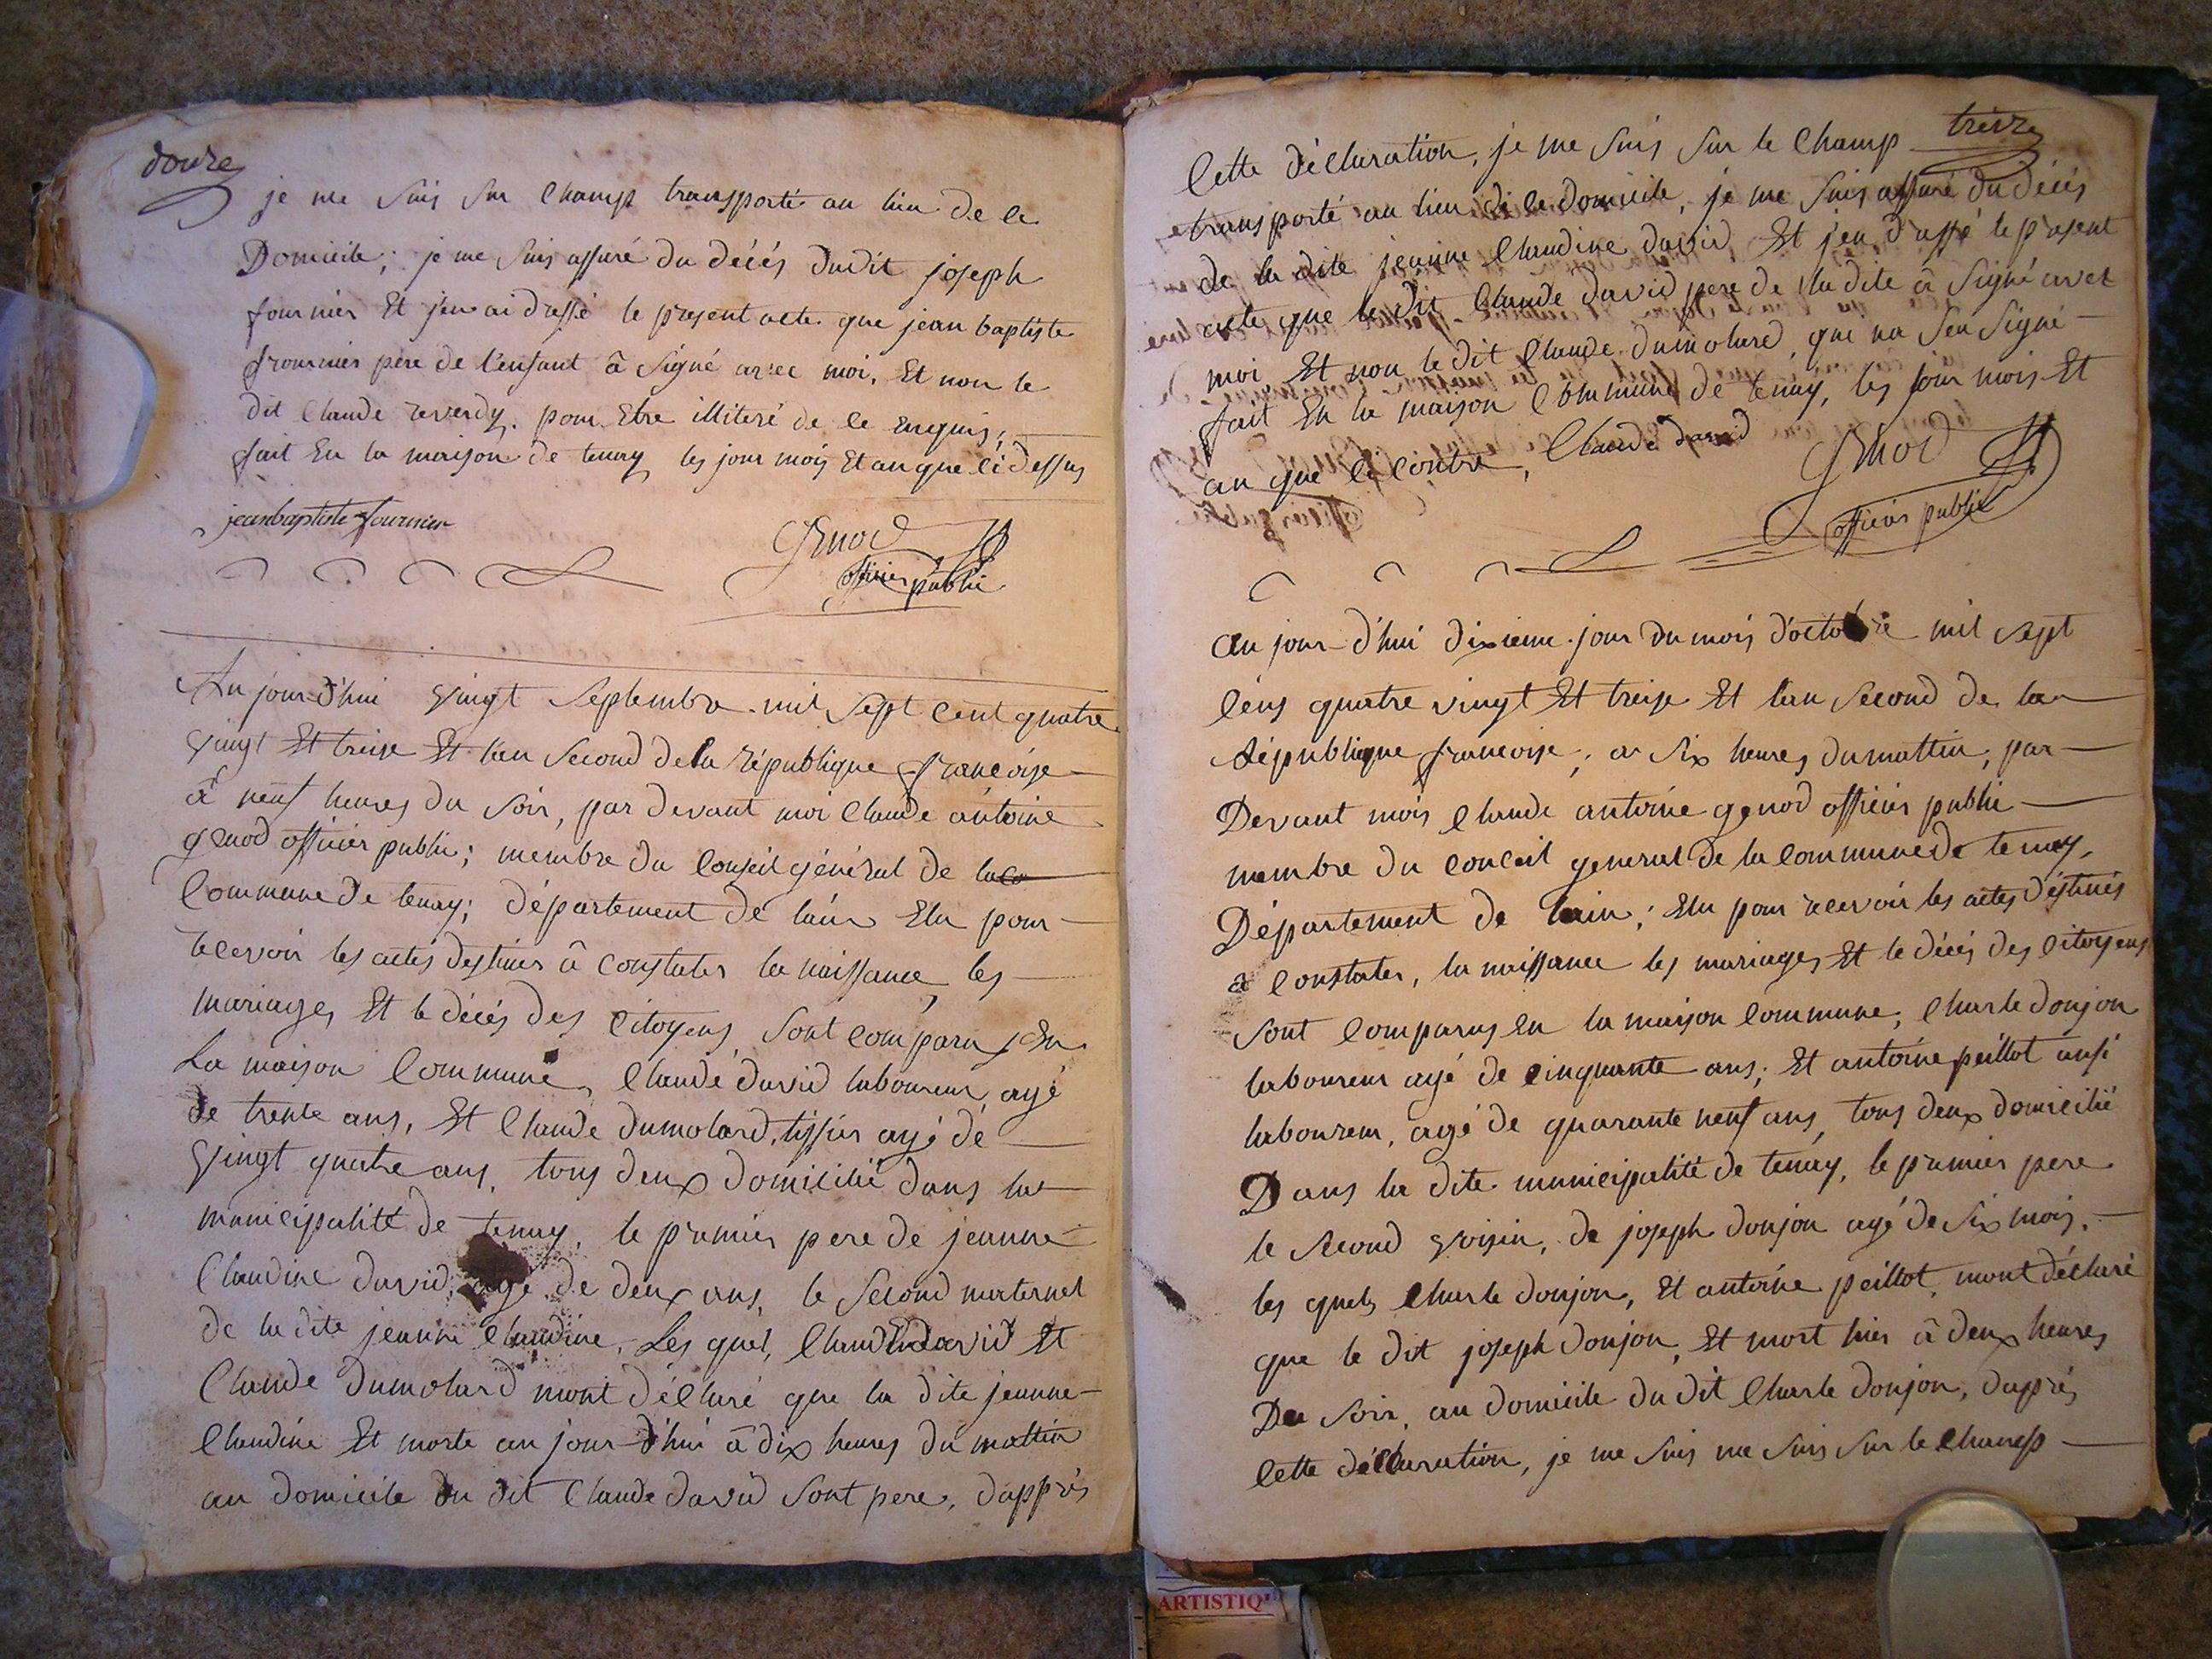 douze
je me suis sur champ transporté au lieu de ce
Domicile; je me suis assuré du décés dudit joseph
fournier Et jen ai dressé le present acte que jean baptiste
frournier père de l'enfant â signé avec moi, Et non le
dit claude reverdy. pour Etre illiteré de ce enquis;
fait En la maison de tenay les jour mois Et an que ci dessus
jeanbaptiste fournier
Genod
officier public
Au jour d'hui vingt septembre mil sept cent quatre
vingt Et treise Et l'an second de la république francoise
â neuf heures du soir, par devant moi claude antoine
genod officier public; membre du conseil général de la
commune de tenay; département de l'ain Elu pour
recevoir les actes destinés â constater la naissance, les
mariages Et le décés des citoyens sont comparus En
La maison commune, claude david laboureur agé
de trente ans, Et claude dumolard, tissier agé de
vingt quatre ans, tous deux domicilié dans la
municipalité de tenay, le premier pere de jeanne
claudine david, agé de deux ans, le second maternel
de la dite jeanne claudine, Les quel, claude david Et
claude dumolard mont déclaré que la dite jeanne
claudine Et morte au jour d'hui â dix heures du mattin
au domicile du dit claude david sont pere, dapprès
treize
cette déclaration, je me suis sur le champ
transporté au lieu de ce domicile, je me suis assuré du décés
de la dite jeanne claudine david Et jen d'assé le present
acte que le dit claude david pere de la dite â signé avec
moi Et non le dit claude dumolard, que na seu signé
fait En la maison commune de tenay, les jour mois Et
an que ci contre, claude david
Genod
officier public
au jour d'hui dixieme jour du mois d'octobre mil sept
cens quatre vingt Et treise Et l'an second de la
république francoise; a six heures du mattin, par
Devant mois claude antoine genod officier public
membre du conceil general de la commune de tenay,
Département de lain; Elu pour recevoir les actes déstinés
â constater, la naissance les mariages Et le décés des citoyens
sont comparus En la maison commune, charle donjon
laboureur agé de cinquante ans; Et antoine peillot ausi
laboureur, agé de quarante neuf ans, tous deux domicilié
Dans la dite municipalité de tenay, le premier pere
le second voisin, de joseph donjon agé de six mois,
les quels charle donjon, Et antoine peillot, mont déclaré
que le dit joseph donjon, Et mort hier â deux heures
Du soir, au domicile du dit charle donjon, daprés
cette déclaration, je me suis me suis sur le champ
ARTISTIQ